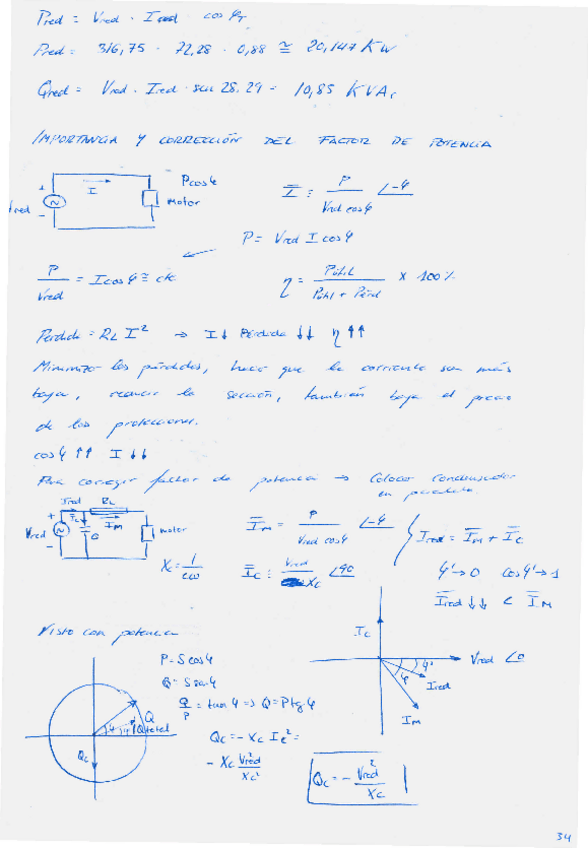 Pred = Vred · Ired · cos φT
Pred = 316,75 · 72,28 · 0,88 ≅ 20,147 KW
Qred = Vred · Ired · sen 28,29 = 10,85 KVAr
IMPORTANCIA Y CORRECCIÓN DEL FACTOR DE POTENCIA
+ Vred - I Pcosφ motor
I = P / Vred cosφ ∠-φ
P = Vred I cosφ
P / Vred = I cosφ ≅ cte
η = Pútil / Pútil + Pérd x 100%
Pérdida = RL I² → I↓ Pérdida ↓↓ η↑↑
Minimizo las pérdidas, hacer que la corriente sea más
baja, reducir la sección, también baja el precio
de las protecciones.
cosφ ↑↑ I ↓↓
Para corregir factor de potencia → Colocar condensador
en paralelo.
Ired RL
+ Vred - IC IM motor
IM = P / Vred cosφ ∠-φ
Ired = IM + IC
XC = 1 / cω
IC = Vred / XC ∠90
φ'→0 cosφ'→1
Ired ↓↓ < IM
Visto con potencia
IC
Vred ∠0
φ φ'
Ired
IM
P = S cosφ
Q = S senφ
Q / P = tan φ => Q = P tg φ
Q
φ φ' Qtotal
QC
QC = - XC IC² =
- XC Vred² / XC²
QC = - Vred² / XC
34